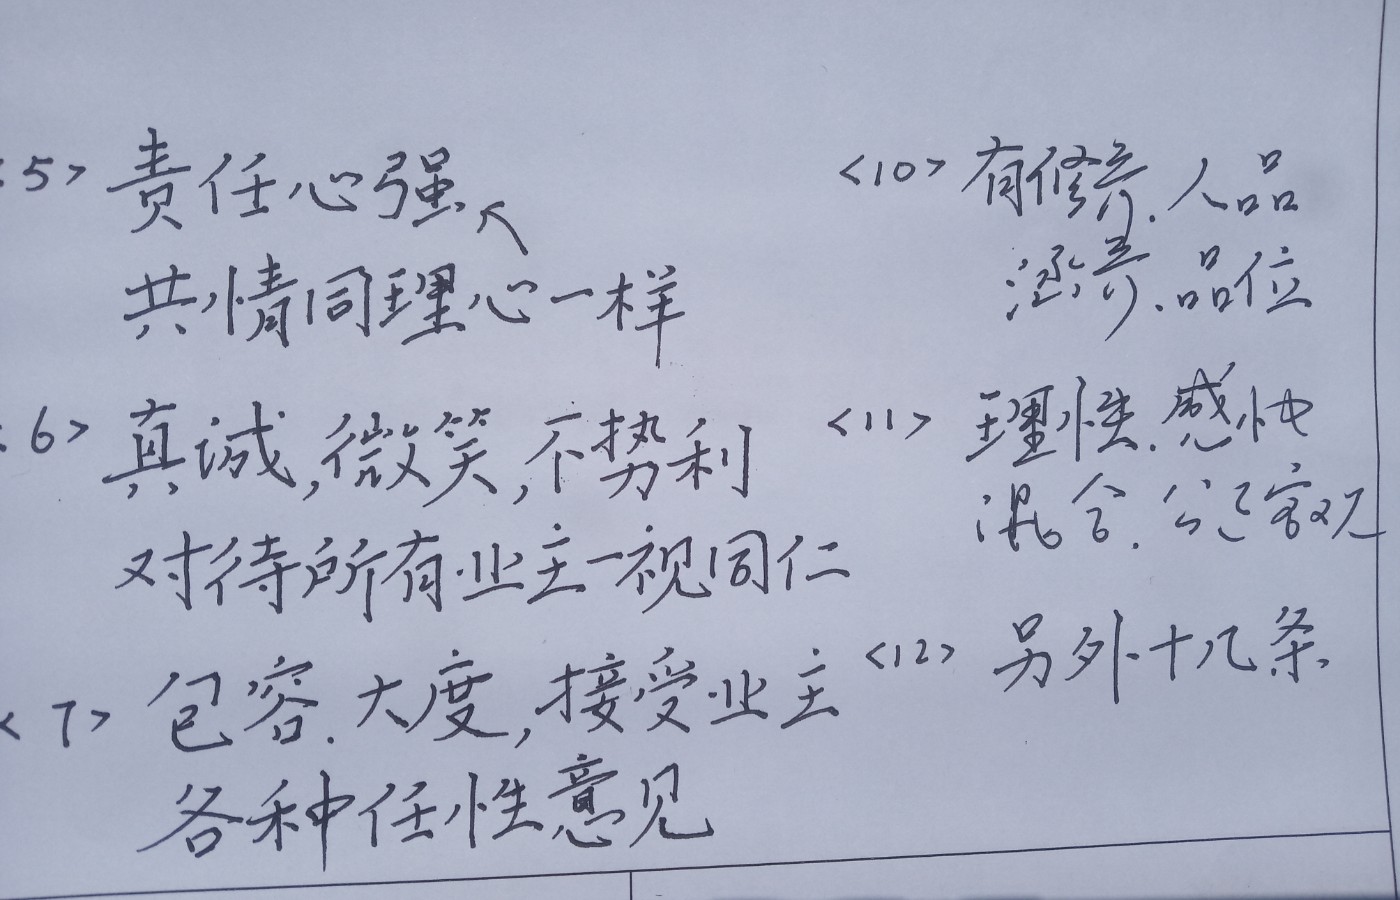 <5> 责任心强
共情同理心一样
<6> 真诚,微笑,不势利
对待所有业主一视同仁
<7> 包容.大度,接受业主
各种任性意见
<10> 有修养.人品
涵养.品位
<11> 理性.感性
混合.公正客观
<12> 另外十几条